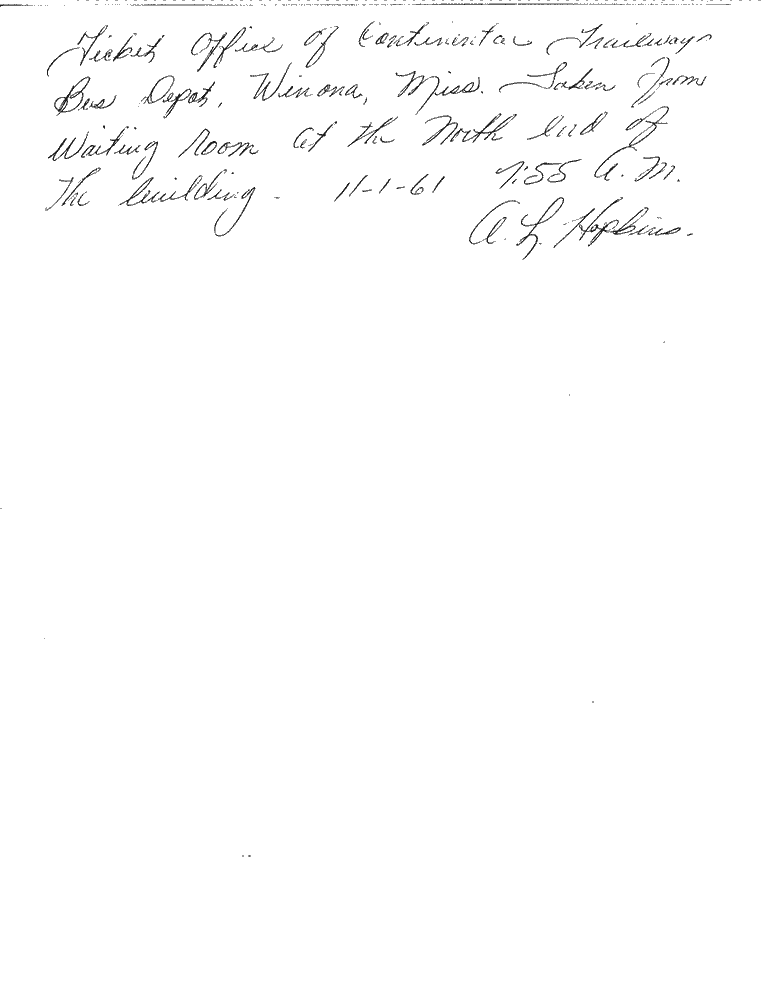 Ticket Office of Continental Trailways
Bus Depot, Winona, Miss. Taken from
Waiting Room at the North End of
The building - 11-1-61 7:55 A.M.
A. L. Hopkins.